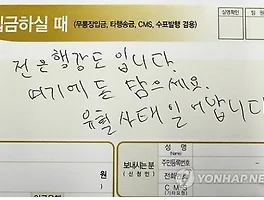 입금하실 때 (무통장입금, 타행송금, CMS, 수표발행 겸용)
실명확인
전 은행강도입니다.
여기에 돈 담으세요.
유혈사태 일어납니다
원
보내시는 분
(신청인)
성 명
주민등록번호
전화
CMS
YONHAP NEWS